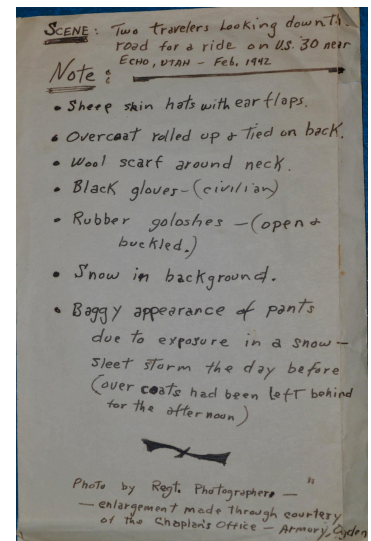 SCENE: Two travelers looking down th
road for a ride on U.S. 30 near
ECHO, UTAH - Feb, 1942
Note:
• Sheep skin hats with ear flaps.
• Overcoat rolled up & tied on back.
• Wool scarf around neck.
• Black gloves - (civilian)
• Rubber goloshes - (open &
buckled.)
• Snow in background.
• Baggy appearance of pants
due to exposure in a snow -
sleet storm the day before
(over coats had been left behind
for the afternoon)
Photo by Regt. Photographers - "
- enlargement made through courtesy
of the Chaplan's Office - Armory, Ogden